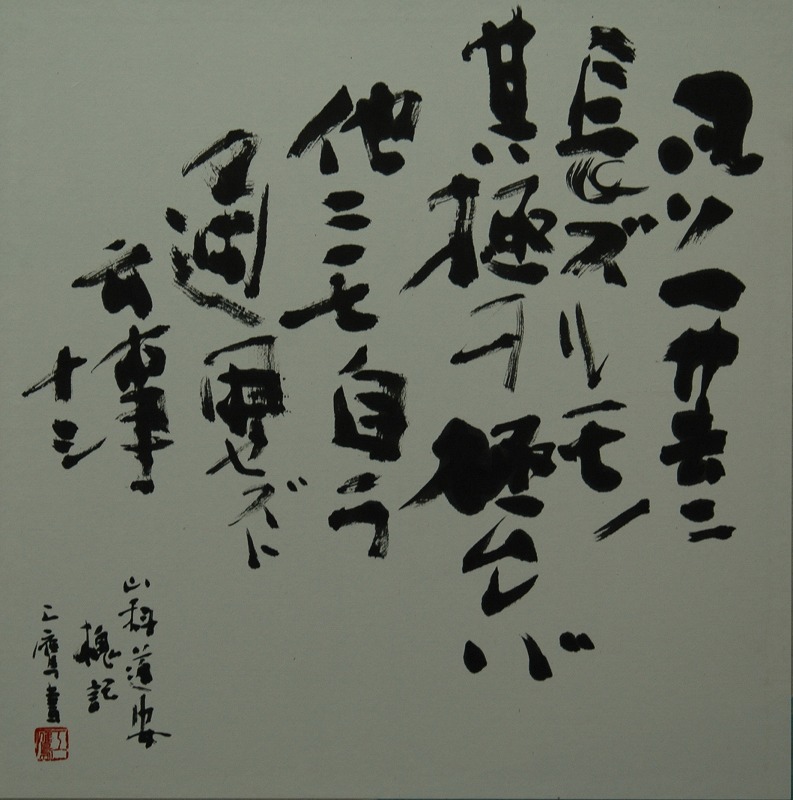 凡ソ一芸ニ
長ズルモノ
其極ヲ極ムレバ
他ニモ自ラ
通セズト
云事
ナシ
山科道安
槐記
鷹書